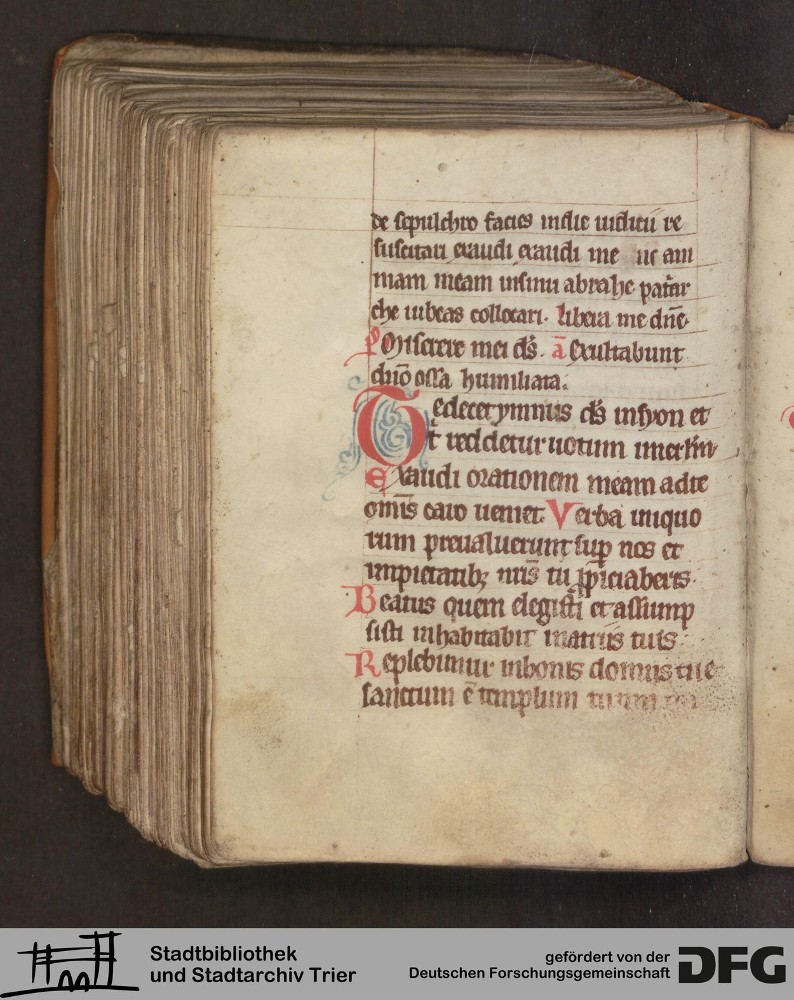 de sepulchro facies indie iudicii re
suscitari exaudi exaudi me ut ani
mam meam insinu abrahe pat̄ar
che iubeas collocari. libera me dn̄e.
p̄s Miserere mei ds̄. ā Exultabunt
dn̄o ossa humiliata.
Te decet ymnus ds̄ insyon et
t̵ reddetur uotum in ierl̄m
Exaudi orationem meam adte
omīs caro ueniet. Verba iniquo
rum preualuerunt sup̱ nos et
impietatibꝫ nr̄is tu ꝓpiciaberis.
Beatus quem elegisti et assump
sisti inhabitabit inatriis tuis
Replebimur inbonis domus tue
sanctum ē templum tuum
Stadtbibliothek
und Stadtarchiv Trier
gefördert von der
Deutschen Forschungsgemeinschaft
DFG